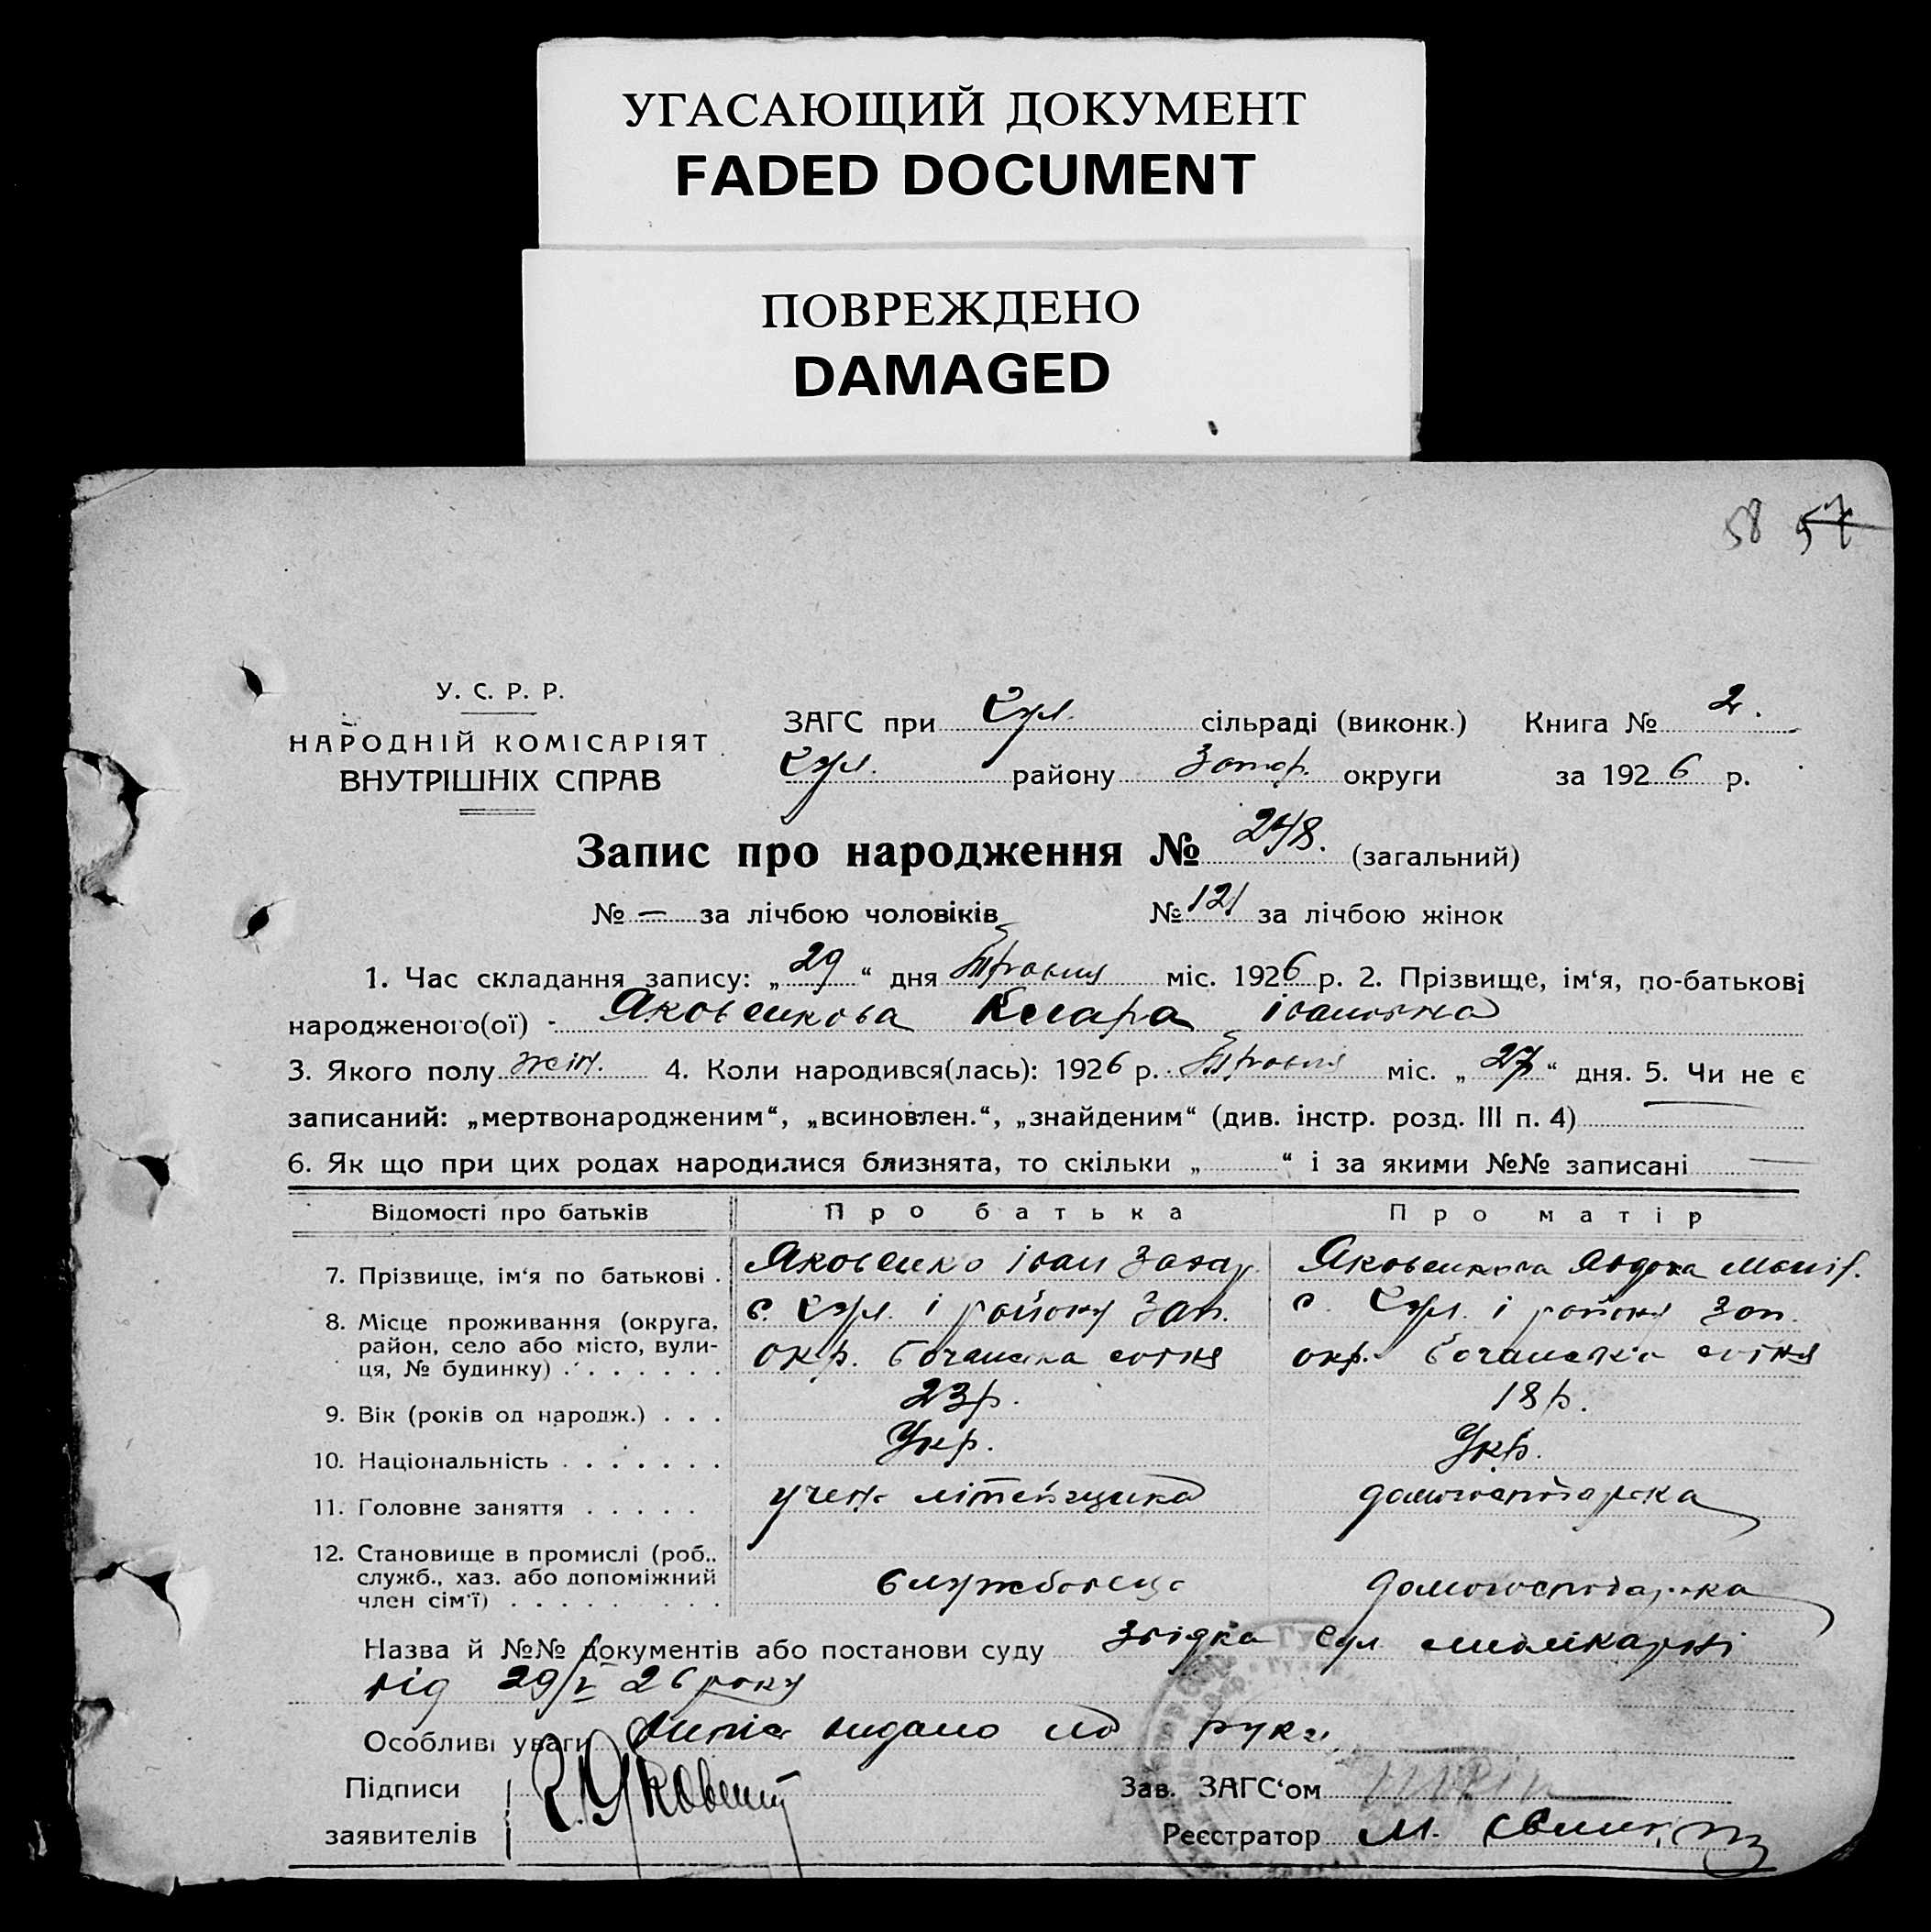 УГАСАЮЩИЙ ДОКУМЕНТ
FADED DOCUMENT
ПОВРЕЖДЕНО
DAMAGED
58 57
У. С. Р. Р.
НАРОДНІЙ КОМІСАРІЯТ
ВНУТРІШНІХ СПРАВ
ЗАГС при Гул. сільраді (виконк.) Книга № 2.
Гул. району Запор. округи за 1926 р.
Запис про народження № 248. (загальний)
№ — за лічбою чоловіків № 121 за лічбою жінок
1. Час складання запису: „29“ дня Травня міс. 1926 р. 2. Прізвище, ім‘я, по-батькові
народженого(ої) - Яковенкова Клара Івановна
3. Якого полу жін. 4. Коли народився(лась): 1926 р. Травня міс. „27“ дня. 5. Чи не є
записаний: „мертвонародженим“, „всиновлен.“, „знайденим“ (див. інстр. розд. III п. 4) —
6. Як що при цих родах народилися близнята, то скільки „ “ і за якими №№ записані —
Відомості про батьків Про батька Про матір
7. Прізвище, ім‘я по батькові . Яковенко Іван Захар. Яковенкова Явдоха
8. Місце проживання (округа, район, село або місто, вулиця, № будинку) . . . . . . .
с. Гул. і району Зап. с. Гул. і району Зап.
окр. сотня окр. сотня
9. Вік (років од народж.) . . . 23 р. 18 р.
10. Національність . . . . . . . Укр. Укр.
11. Головне заняття . . . . . учен. літейщика домогосподарка
12. Становище в промислі (роб., служб., хаз. або допоміжний член сім‘ї) . . . . . . . . .
службовець домогосподарка
Назва й №№ документів або постанови суду Звідка Гул
від 29/V 26 року
Особливі уваги видано на руки
Підписи Зав. ЗАГС‘ом
заявителів Реєстратор М.